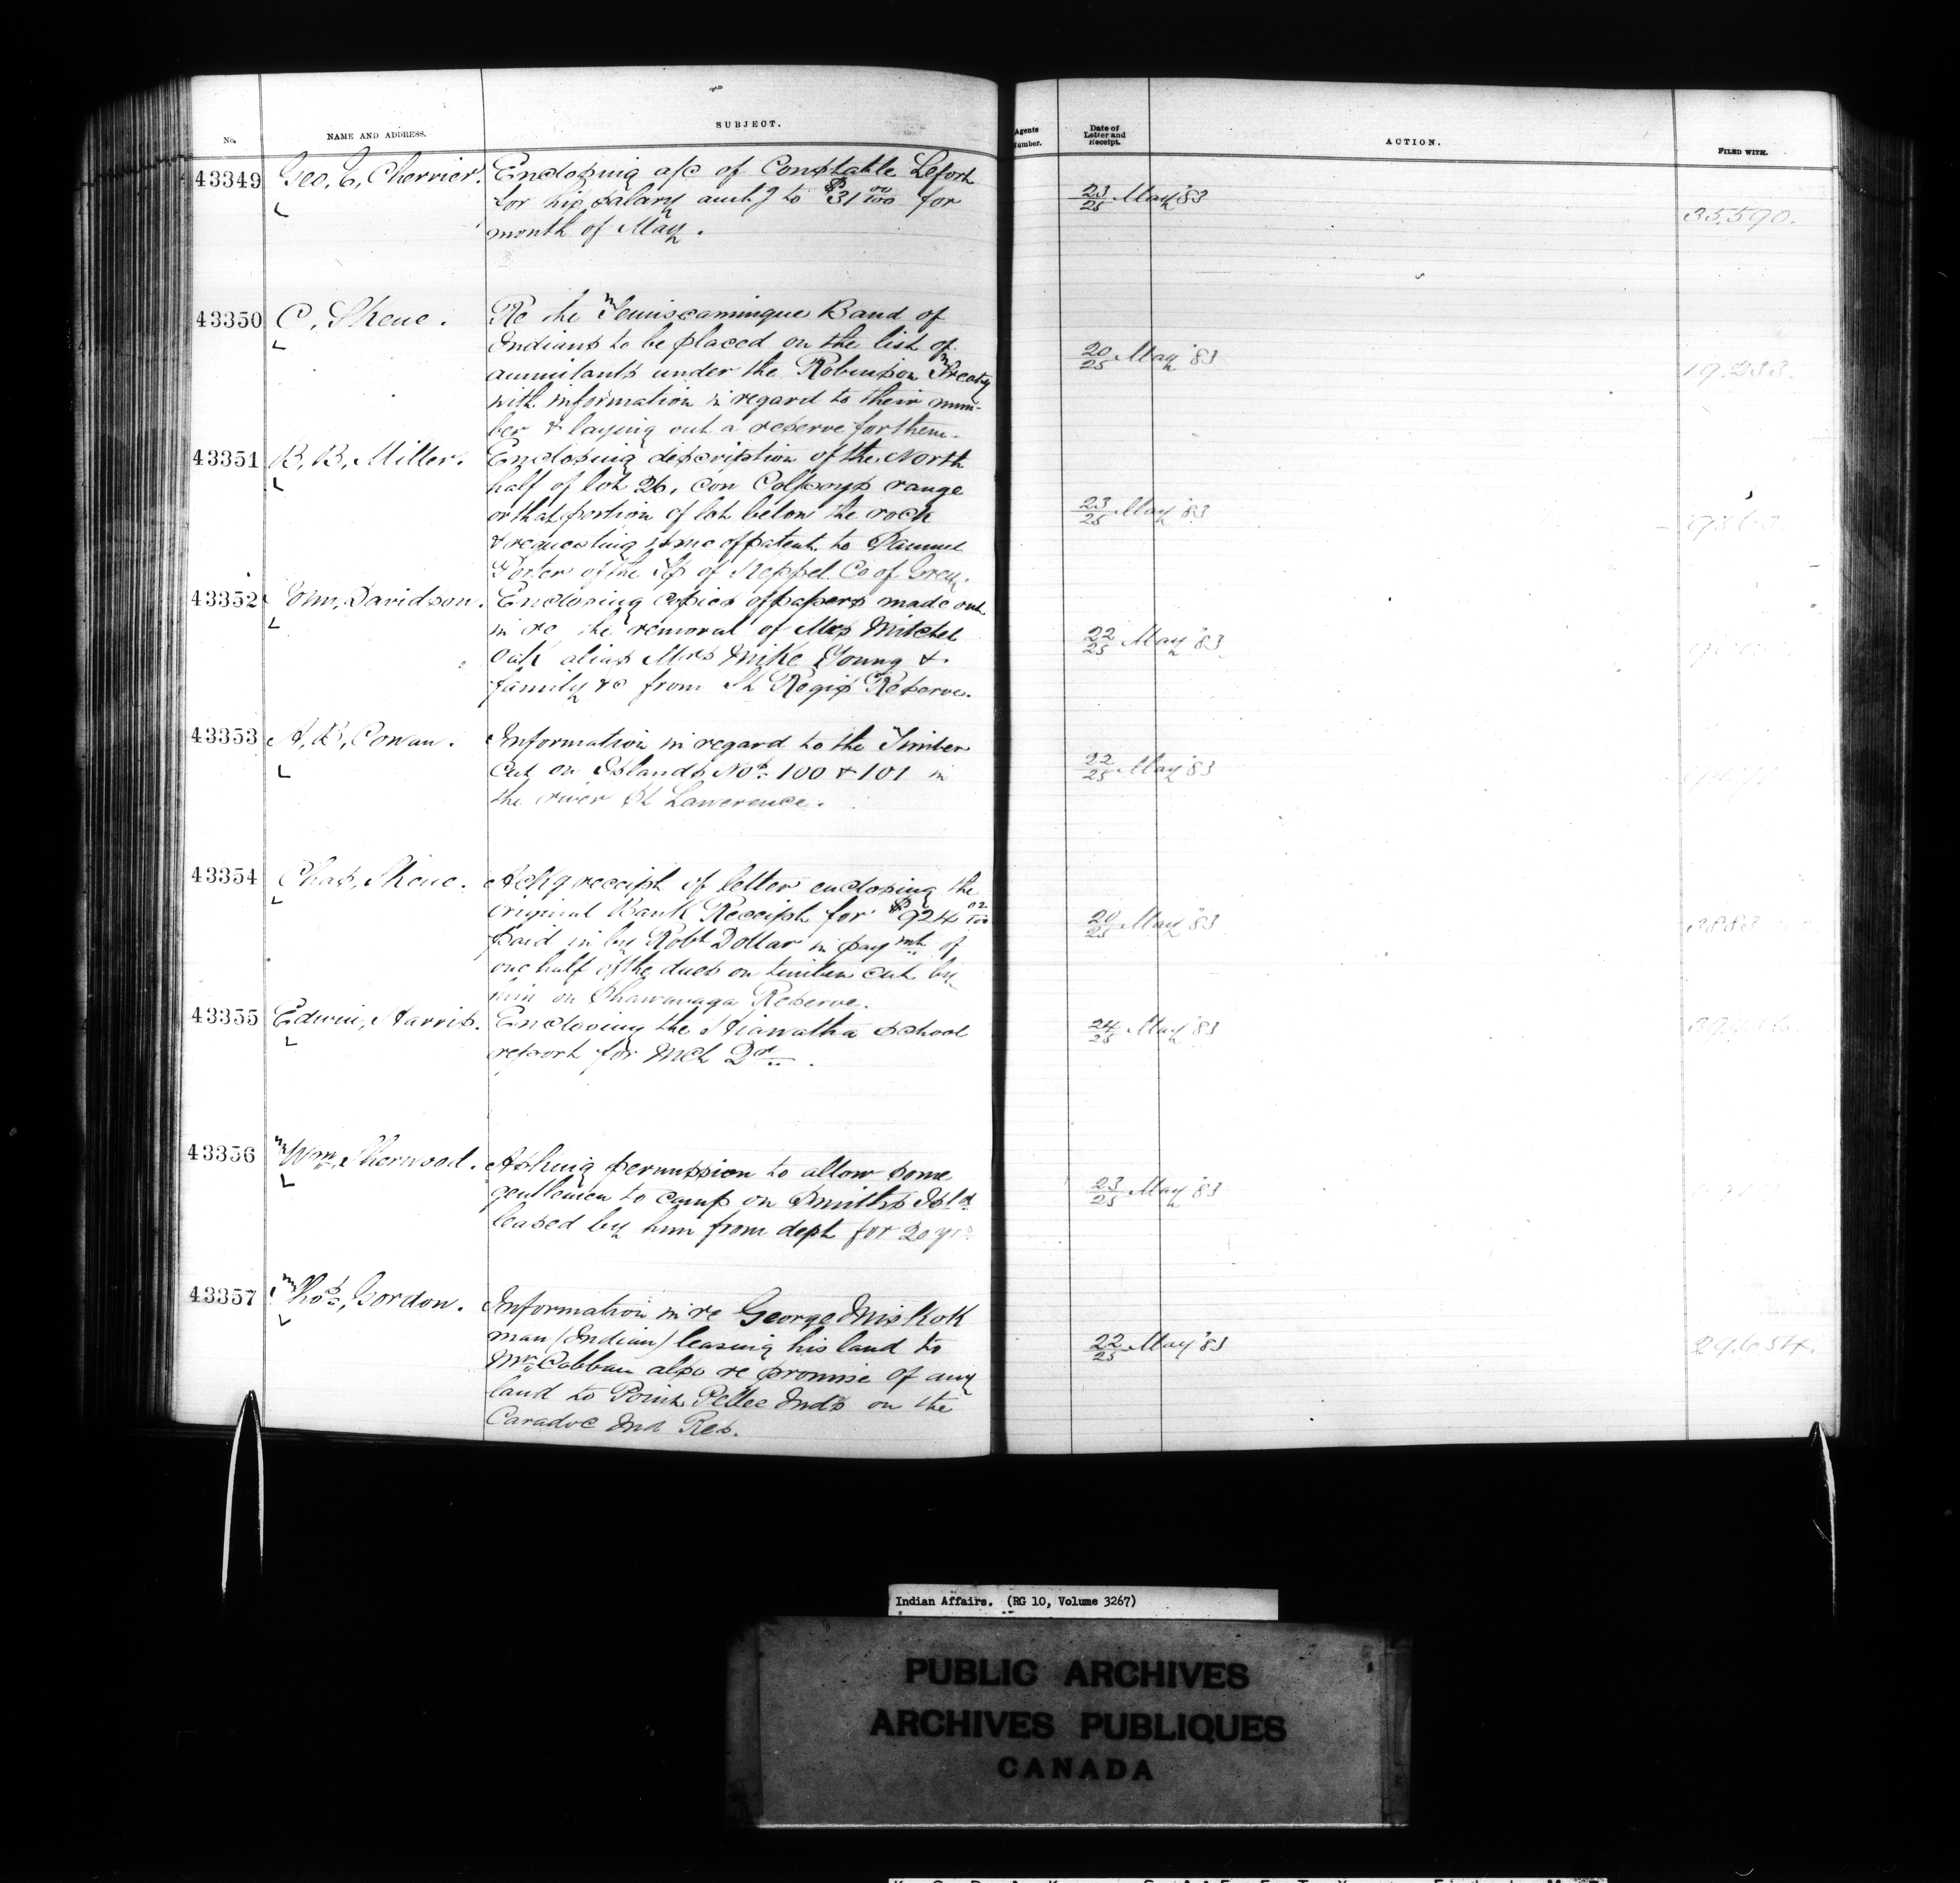 No.
NAME AND ADDRESS.
SUBJECT.
Agents Number.
Date of Letter and Receipt.
ACTION.
FILED WITH.
43349 Geo, E, Cherrier. Enclosing a/c of Constable Lefort
for his salary amtg to $31 00/100 for
month of May.
23/25 May '83
35.590.
43350 C, Skene. Re the Temiscamingue Band of
Indians to be placed on the list of
annuitants under the Robinson Treaty
with information in regard to their num-
ber & laying out a reserve for them.
20/25 May '83
19.233.
43351 B, B, Miller. Enclosing description of the North
half of lot 26, con Colpoys range
or that portion of lot below the rock
& requesting issue of patent to Samuel
Porter of the Tp of Keppel Co of Grey.
23/25 May '83
43352 Wm, Davidson. Enclosing copies of papers made out
in re the removal of Mrs Mitchel
Oak alias Mrs Mike Young &
family &c from St Regis Reserve.
22/25 May '83
43353 A, B, Cowan. Information in regard to the Timber
cut on Islands Nos. 100 & 101 in
the river St Lawerence.
22/25 May '83
43354 Chas, Skene. Ackg receipt of letter enclosing the
original Bank Receipt for $924 02/100
paid in by Robt Dollar in paymt of
one half of the dues on timber cut by
him on Shawanaga Reserve.
20/25 May '83
43355 Edwin, Harris. Enclosing the Hiawatha school
report for Mch Qr.
24/25 May '83
43356 Wm, Sherwood. Asking permission to allow some
gentlemen to camp on Smiths Isld
leased by him from dept for 20 yrs
23/25 May '83
43357 Thos, Gordon. Information in re George Miskok
man (Indian) leasing his land to
Mr. Cobban also re promise of any
land to Point Pellee Inds on the
Caradoc Ind Res.
22/25 May '83
29.654.
Indian Affairs. (RG 10, Volume 3267)
PUBLIC ARCHIVES
ARCHIVES PUBLIQUES
CANADA